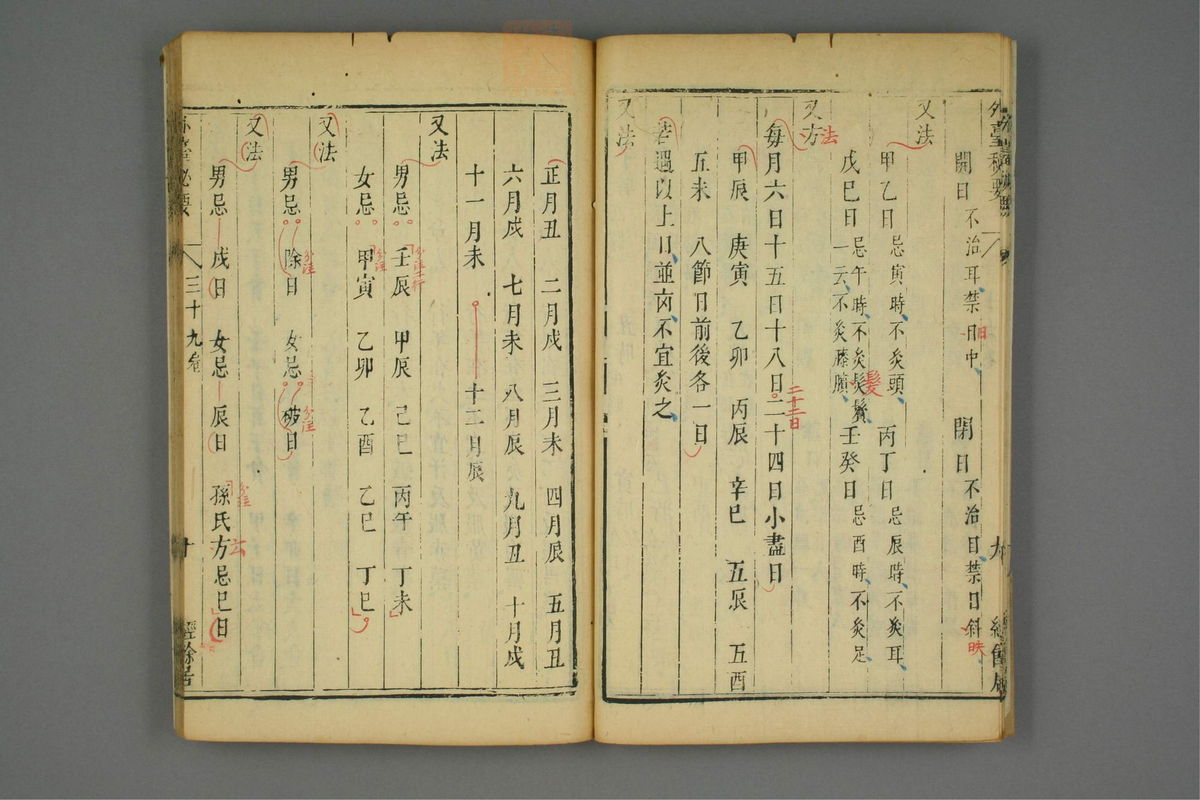 外臺秘要
開日 不治耳禁日中 閉日 不治日禁日斜
日
映
又法
甲乙日 忌寅時不灸頭 丙丁日 忌辰時不灸耳
戊巳日 忌午時不灸髮鬢 壬癸日 忌酉時不灸足
一云不灸膝臏
髮
又方
法
每月六日十五日十八日二十四日小盡日
二十二日
甲辰 庚寅 乙卯 丙辰 辛巳 五辰 五酉
五未 八節日前後各一日
若遇以上日並凶不宜灸之
又法
正月丑 二月戌 三月未 四月辰 五月丑
六月戌 七月未 八月辰 九月丑 十月戌
十一月未 十二月辰
又法
男忌 壬辰 甲辰 己巳 丙午 丁未
分注一行
女忌 甲寅 乙卯 乙酉 乙巳 丁巳
分注
又法
男忌 除日 女忌 破日
分注
分注
又法
男忌 戌日 女忌 辰日 孫氏方忌巳日
分注
云
外臺秘要 三十九卷 十 經餘居